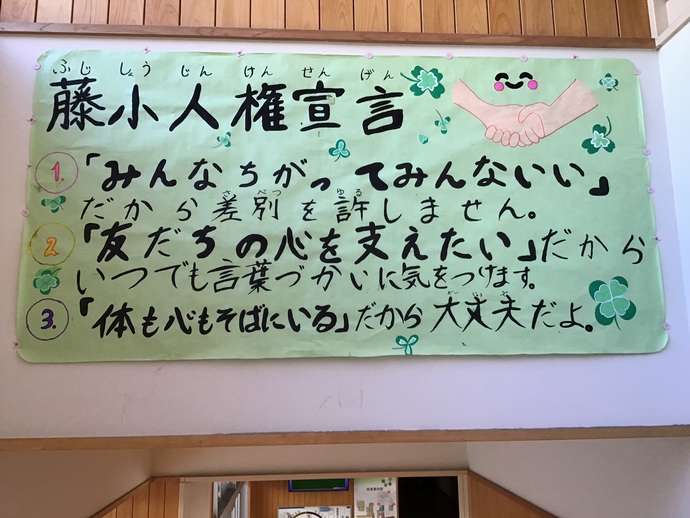 ふじ しょう じん けん せん げん
藤小人権宣言
1. 「みんなちがってみんないい」
さ べつ ゆる
だから差別を許しません。
2. 「友だちの心を支えたい」だから
いつでも言葉づかいに気をつけます。
3. 「体も心もそばにいる」だから大丈夫だよ。